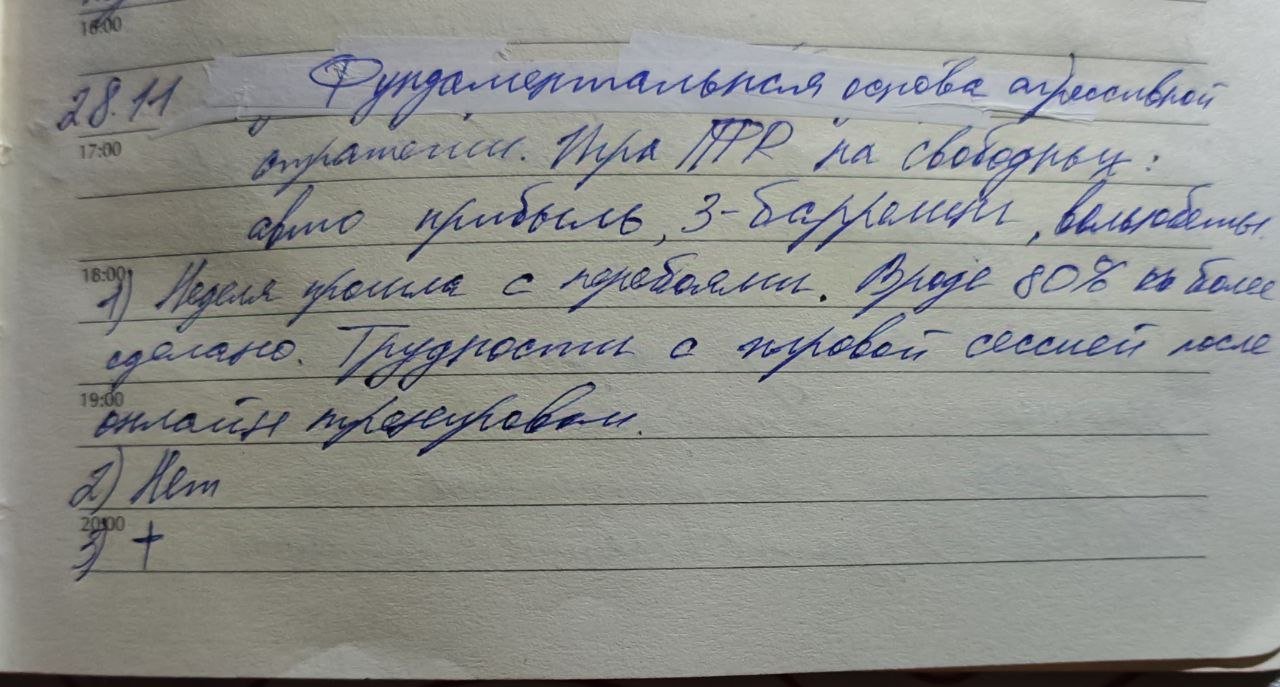 16:00
28.11 Фундаментальная основа агрессивной
17:00
стратегии. Игра ПФR на свободных:
авто прибыль, 3-баррелинг, вэльюбеты.
18:00
1) Неделя прошла с перебоями. Вроде 80% и более
сделано. Трудности с игровой сессией после
19:00
онлайн тренировки.
2) Нет
20:00
3) +